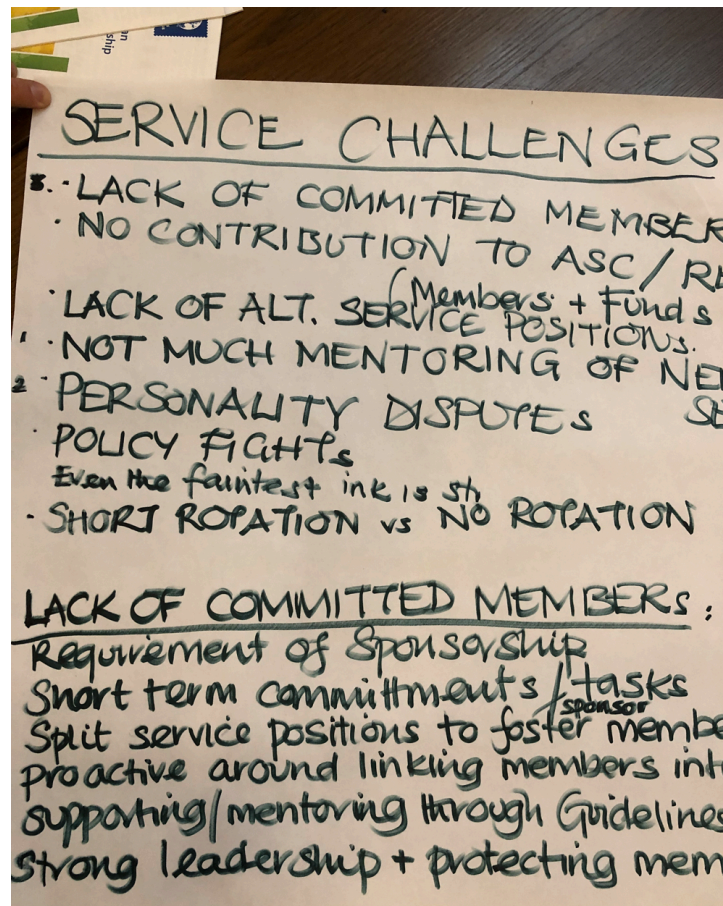 n
ship
SERVICE CHALLENGES
3. · LACK OF COMMITTED MEMBER
· NO CONTRIBUTION TO ASC/R
(Members + Funds
· LACK OF ALT. SERVICE POSITIONS.
1 · NOT MUCH MENTORING OF NE
2 · PERSONALITY DISPUTES S
· POLICY FIGHTS
Even the faintest ink is st
· SHORT ROTATION vs NO ROTATION
LACK OF COMMITTED MEMBERS:
Requirement of Sponsorship
Short term committments/tasks
/sponsor
Split service positions to foster membe
proactive around linking members int
supporting/mentoring through Guidelines
strong leadership + protecting mem